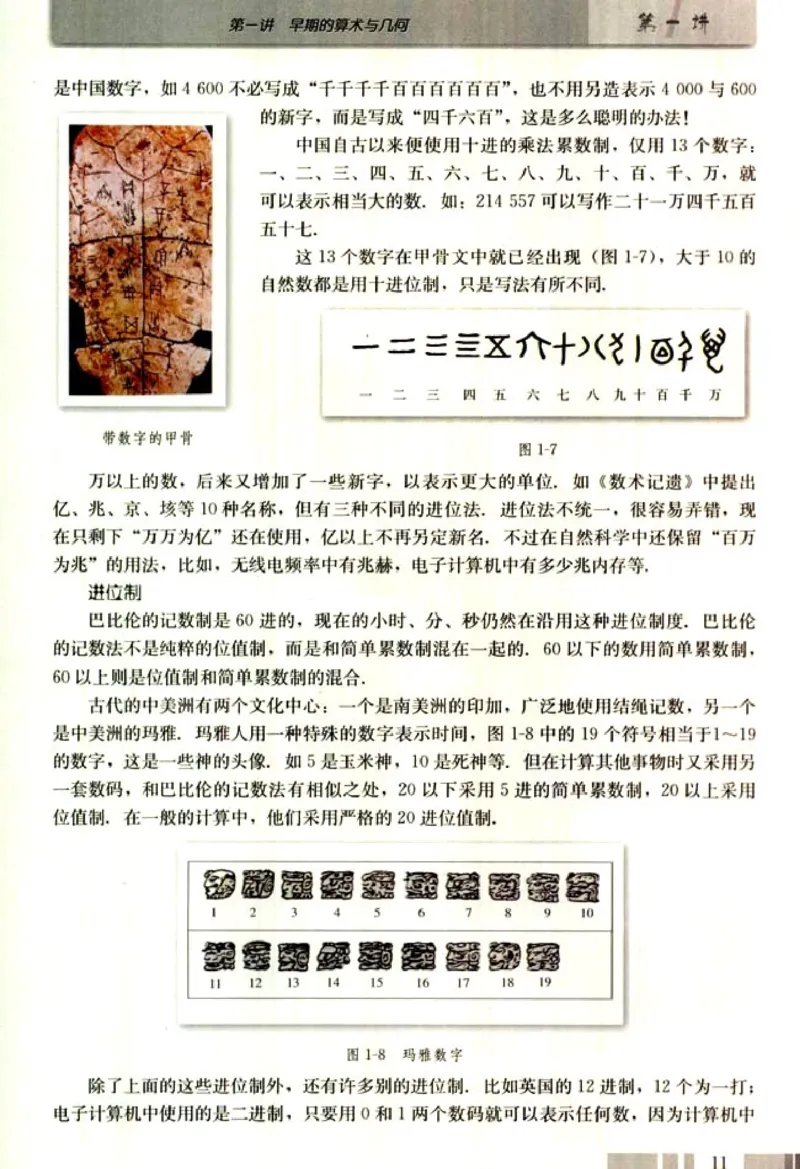 第一讲 早期的算术与几何
第一讲
是中国数字，如 4 600 不必写成“千千千千百百百百百百”，也不用另造表示 4 000 与 600
的新字，而是写成“四千六百”，这是多么聪明的办法！
中国自古以来便使用十进的乘法累数制，仅用 13 个数字：
一、二、三、四、五、六、七、八、九、十、百、千、万，就
可以表示相当大的数．如：214 557 可以写作二十一万四千五百
五十七．
这 13 个数字在甲骨文中就已经出现（图 1-7），大于 10 的
自然数都是用十进位制，只是写法有所不同．
一 二 三 四 五 六 七 八 九 十 百 千 万
带数字的甲骨
图 1-7
万以上的数，后来又增加了一些新字，以表示更大的单位．如《数术记遗》中提出
亿、兆、京、垓等 10 种名称，但有三种不同的进位法．进位法不统一，很容易弄错，现
在只剩下“万万为亿”还在使用，亿以上不再另定新名．不过在自然科学中还保留“百万
为兆”的用法，比如，无线电频率中有兆赫，电子计算机中有多少兆内存等．
进位制
巴比伦的记数制是 60 进的，现在的小时、分、秒仍然在沿用这种进位制度．巴比伦
的记数法不是纯粹的位值制，而是和简单累数制混在一起的．60 以下的数用简单累数制，
60 以上则是位值制和简单累数制的混合．
古代的中美洲有两个文化中心：一个是南美洲的印加，广泛地使用结绳记数，另一个
是中美洲的玛雅．玛雅人用一种特殊的数字表示时间，图 1-8 中的 19 个符号相当于1～19
的数字，这是一些神的头像．如 5 是玉米神，10 是死神等．但在计算其他事物时又采用另
一套数码，和巴比伦的记数法有相似之处，20 以下采用 5 进的简单累数制，20 以上采用
位值制．在一般的计算中，他们采用严格的 20 进位值制．
1 2 3 4 5 6 7 8 9 10
11 12 13 14 15 16 17 18 19
图 1-8 玛雅数字
除了上面的这些进位制外，还有许多别的进位制．比如英国的 12 进制，12 个为一打；
电子计算机中使用的是二进制，只要用 0 和 1 两个数码就可以表示任何数，因为计算机中
11